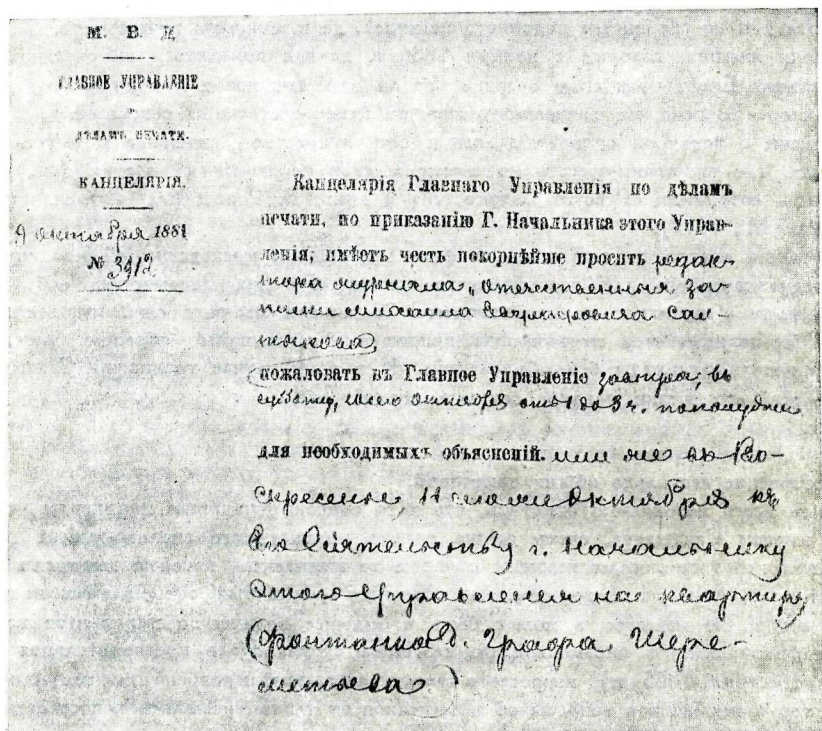 М. В. Д.
ГЛАВНОЕ УПРАВЛЕНІЕ
по
ДѢЛАМЪ ПЕЧАТИ.
КАНЦЕЛЯРІЯ.
9 октября 1881
№ 3912
Канцелярія Главнаго Управленія по дѣламъ
печати, по приказанію Г. Начальника этого Управ-
ленія, имѣетъ честь покорнѣйше просить редак-
тора журнала „Отечественныя За-
писки Михаила Евграфовича Сал-
тыкова,
пожаловать въ Главное Управленіе завтра, въ
субботу, октября отъ 1 до 3 ч. пополудни
для необходимыхъ объясненій. или же въ Во-
скресенье, 11 октября къ
Его Сіятельству г. Начальнику
этого Управленія на квартиру
(Фонтанка д. Графа Шере-
метьева)